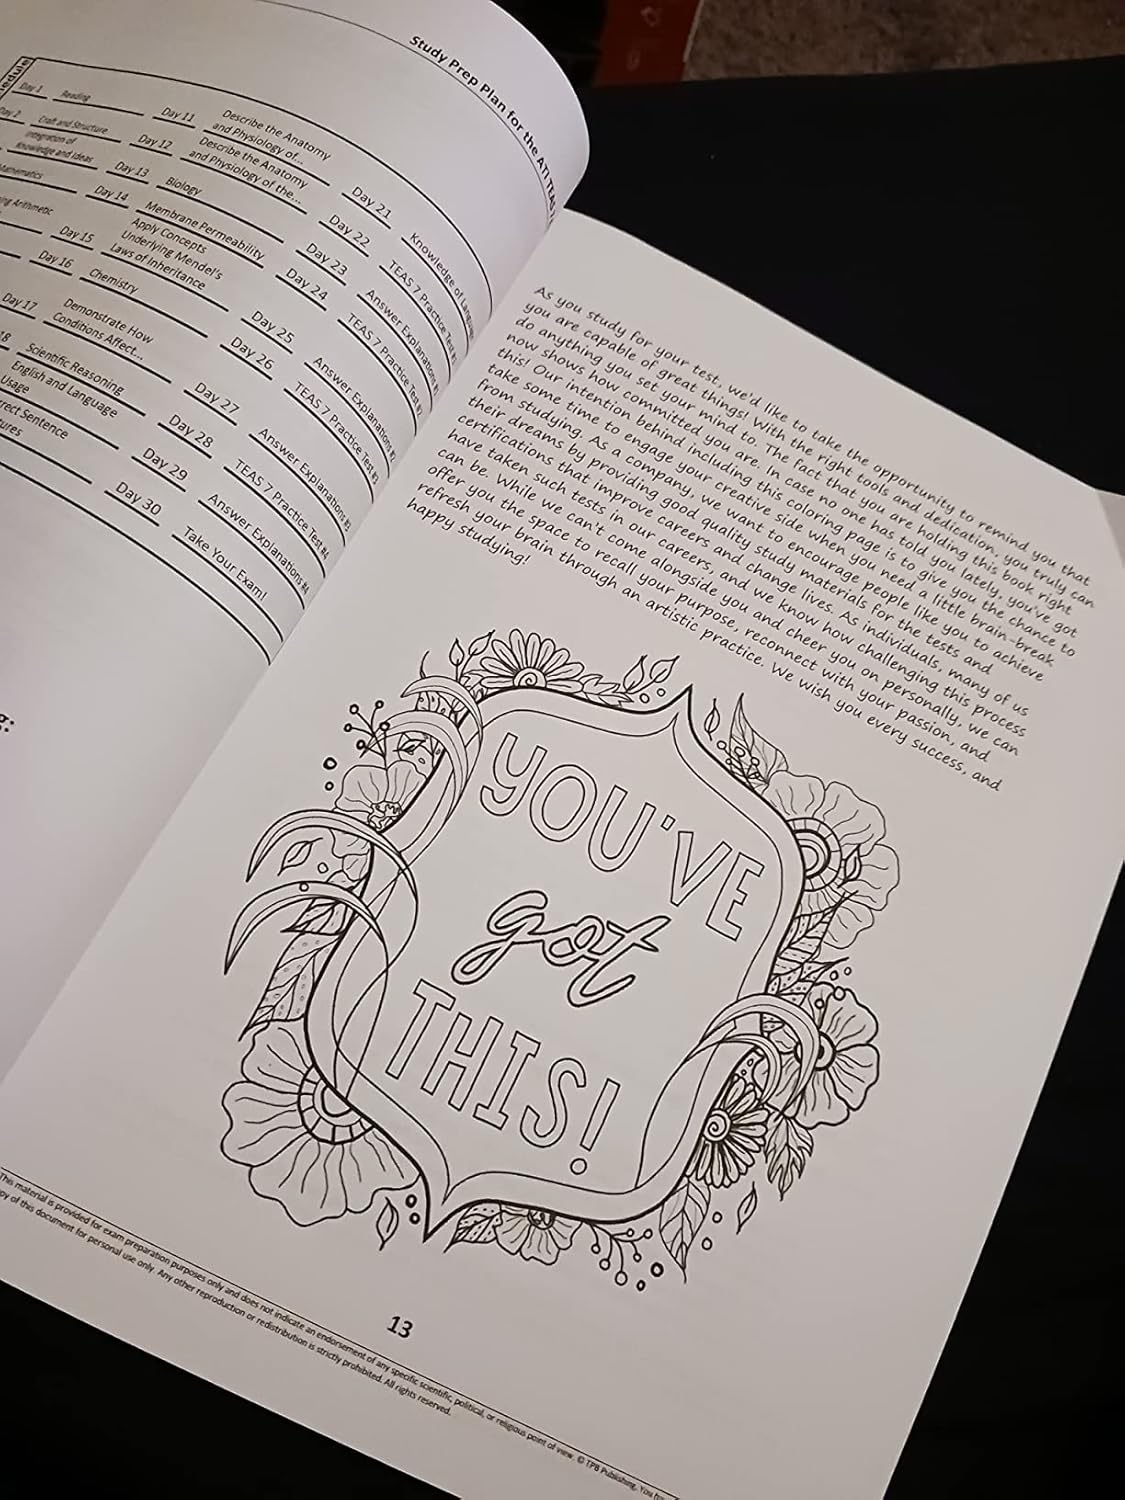 Study Prep Plan for the ATI TEAS
Day 1 Reading
Day 2 Craft and Structure
Integration of
Knowledge and Ideas
Mathematics
Arithmetic
Day 11 Describe the Anatomy
and Physiology of...
Day 12 Describe the Anatomy
and Physiology of the...
Day 13 Biology
Day 14 Membrane Permeability
Day 15 Apply Concepts
Underlying Mendel's
Laws of Inheritance
Day 16 Chemistry
Day 17 Demonstrate How
Conditions Affect...
18 Scientific Reasoning
English and Language
Usage
Sentence
Day 21 Knowledge of
Day 22 TEAS 7 Practice Test #1
Day 23 Answer Explanations #1
Day 24 TEAS 7 Practice Test #2
Day 25 Answer Explanations #2
Day 26 TEAS 7 Practice Test #3
Day 27 Answer Explanations #3
Day 28 TEAS 7 Practice Test #4
Day 29 Answer Explanations #4
Day 30 Take Your Exam!
As you study for your test, we'd like to take the opportunity to remind you that
you are capable of great things! With the right tools and dedication, you truly can
do anything you set your mind to. The fact that you are holding this book right
now shows how committed you are. In case no one has told you lately, you've got
this! Our intention behind including this coloring page is to give you the chance to
take some time to engage your creative side when you need a little brain-break
from studying. As a company, we want to encourage people like you to achieve
their dreams by providing good quality study materials for the tests and
certifications that improve careers and change lives. As individuals, many of us
have taken such tests in our careers, and we know how challenging this process
can be. While we can't come alongside you and cheer you on personally, we can
offer you the space to recall your purpose, reconnect with your passion, and
refresh your brain through an artistic practice. We wish you every success, and
happy studying!
YOU'VE
got
THIS!
13
This material is provided for exam preparation purposes only and does not indicate an endorsement of any specific scientific, political, or religious point of view. © TPB Publishing. You
of this document for personal use only. Any other reproduction or redistribution is strictly prohibited. All rights reserved.